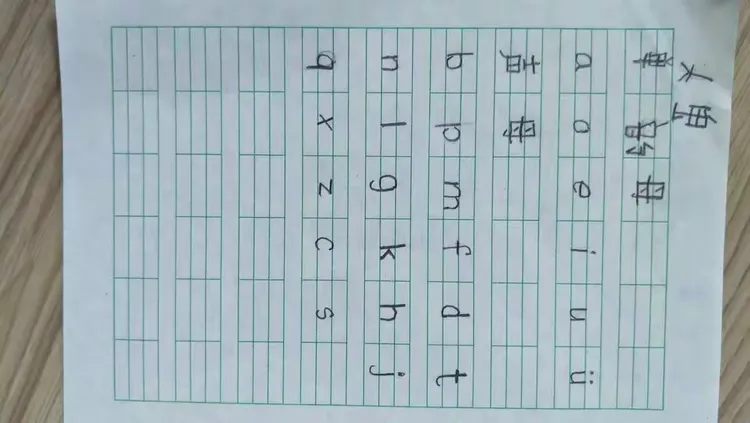 单韵母
a o e i u ü
声母
b p m f d t
n l g k h j
q x z c s